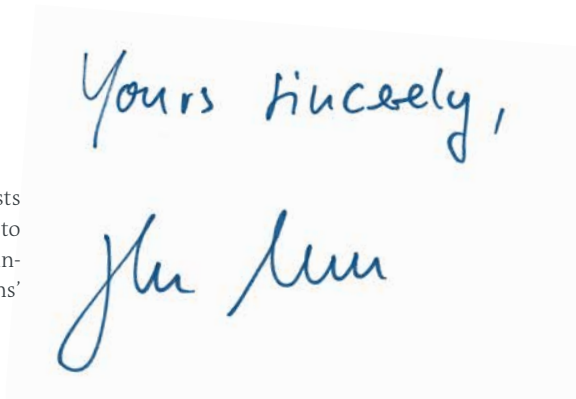 Yours sincerely,
sts
to
n-
ns’